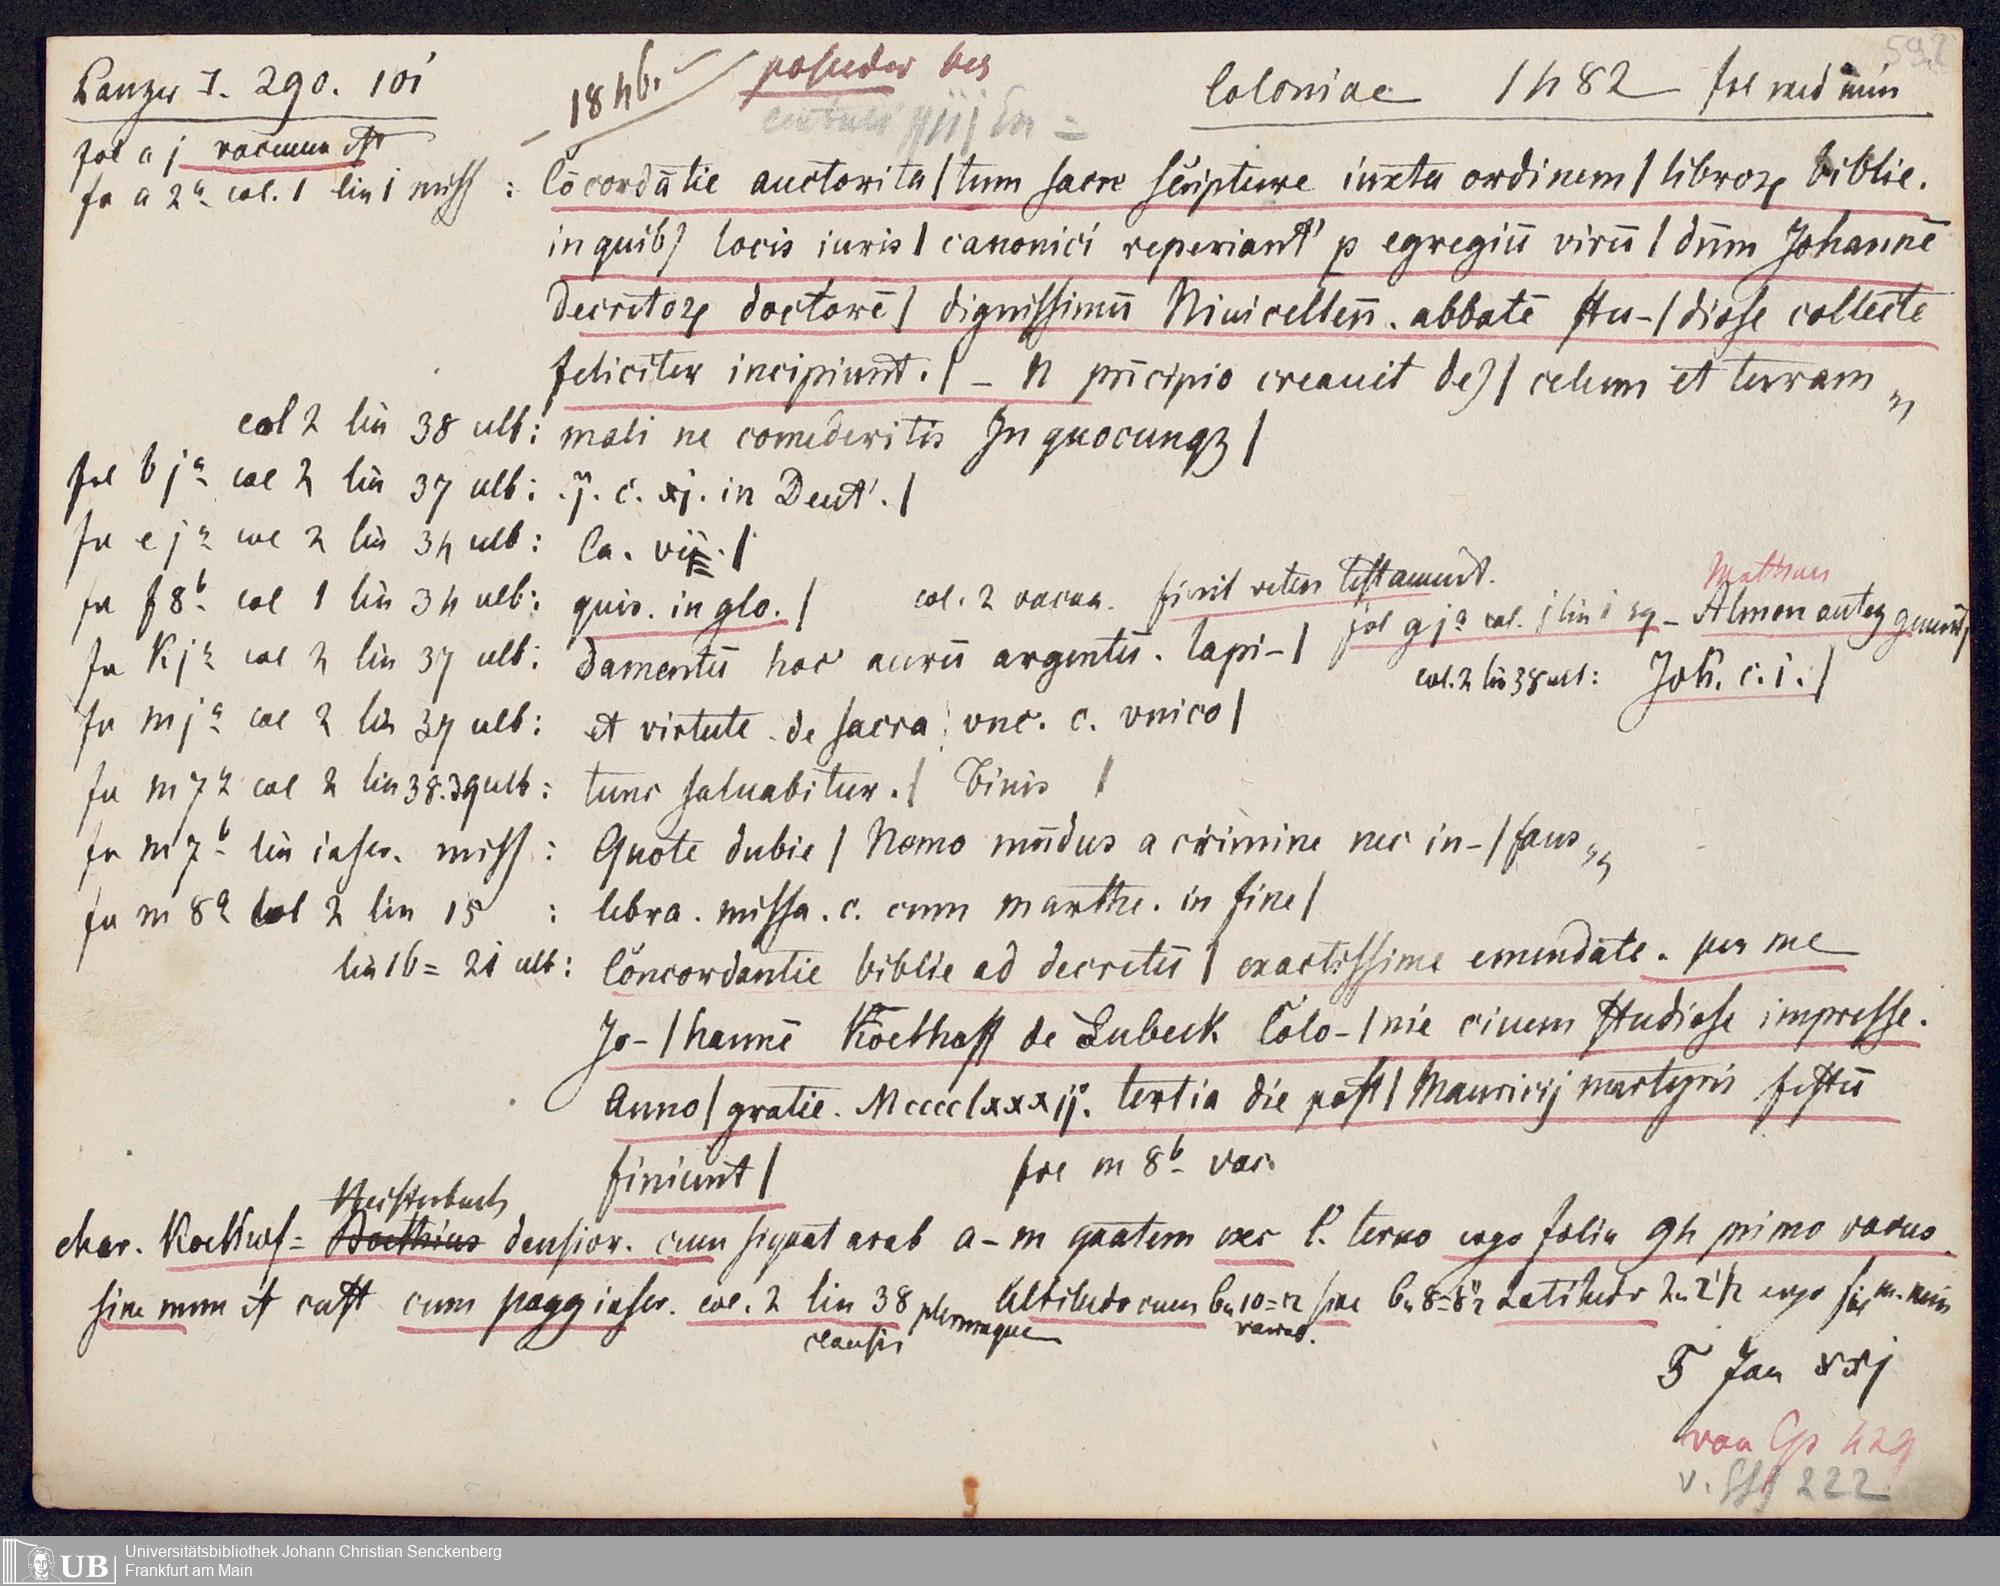 592
Panzer I. 290. 101
1846.
Coloniae 1482 fol med min
fol a j vacuum est
fo a 2a col. 1 lin 1 miss : Cōcordātie auctorita/tum sacre scripture iuxta ordinem/ libroꝝ biblie.
in quibꝰ locis iuris/ canonici reperiant' p egregiū virū/ dn̄m Johannē
Decretoꝝ doctorē/ dignissimū Niuicellen̄. abbatē stu-/diose collecte
feliciter incipiunt./ - N prīcipio creauit deꝰ/ celum et terram
col 2 lin 38 ult: mali ne comederitis In quocunqꝫ/
fol b ja col 2 lin 37 ult: .j. c. xj. in Deut'./
fo e ja col 2 lin 34 ult: Ca. vij./
fo f 8b col 1 lin 34 ult: quis. in glo./ col. 2 vacua. finit vetus testament.
Mattheus
fol g ja col. j lin 1 sq - Almon auteꝫ genuit/
fo K ja col 2 lin 37 ult: damentū hoc aurū argentū. lapi-/
col. 2 lin 38 ult: Joh. c. i./
fo m ja col 2 lin 37 ult: et virtute de sacra vnc. c. vnico/
fo m 7a col 2 lin 38.39 ult: tunc saluabitur./ Finis /
fo m 7b lin inscr. miss : Quote dubie/ Nemo mūdus a crimine nec in-/faus
fo m 8a col 2 lin 15 : lebra. missa. c. cum marthe. in fine/
lin 16 = 21 ult: Concordantie biblie ad decretū/ exactissime emendate. per me
Jo-/hannē Koelhoff de Lubeck Colo-/nie ciuem studiose impresse.
Anno/ gratie. Mccccclxxxij. tertia die post/ Mauricij martyris festū
finiunt/ fol m 8b vac.
char. Koelhof = densior. cum signat arab a - m quatern exc l. terno ergo folia 94 primo vacuo
sine num et cust cum pagg inscr. col. 2 lin 38 plerumque Altitudo cum
clausis
5 Jan xxj
222
Universitätsbibliothek Johann Christian Senckenberg
Frankfurt am Main
UB